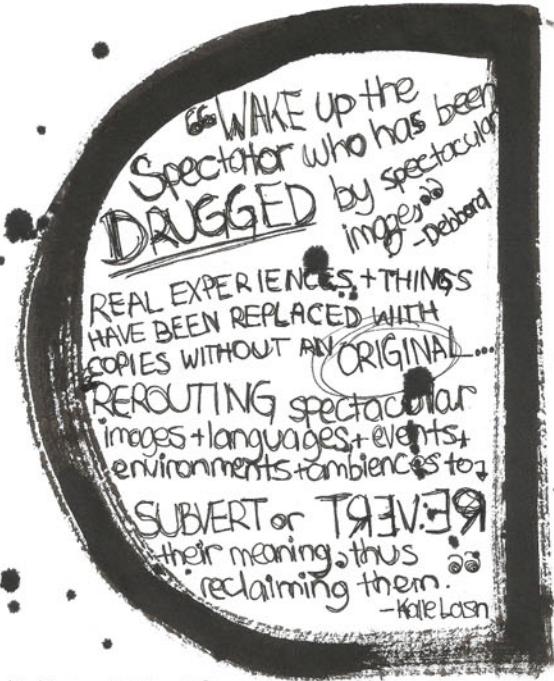 “WAKE up the
Spectator who has been
DRUGGED by spectacular
images”
-Debbord
REAL EXPERIENCES,+THINGS
HAVE BEEN REPLACED WITH
COPIES WITHOUT AN ORIGINAL...
REROUTING spectacular
images+languages,+events+
environments+ambiences to
SUBVERT or REVERT
their meaning, thus
reclaiming them.”
-Kalle Lasn